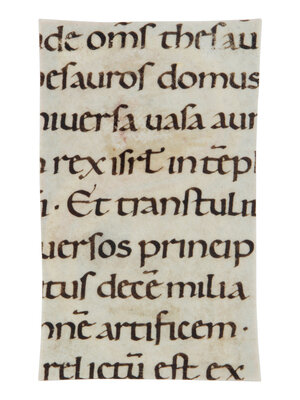 de om̅s thesau
hesauros domus
niuersa uasa aur
rex isrł in tēpl
i · Et transtulit
uersos princip
ctus decē milia
nnē artificem ·
relictū est ex